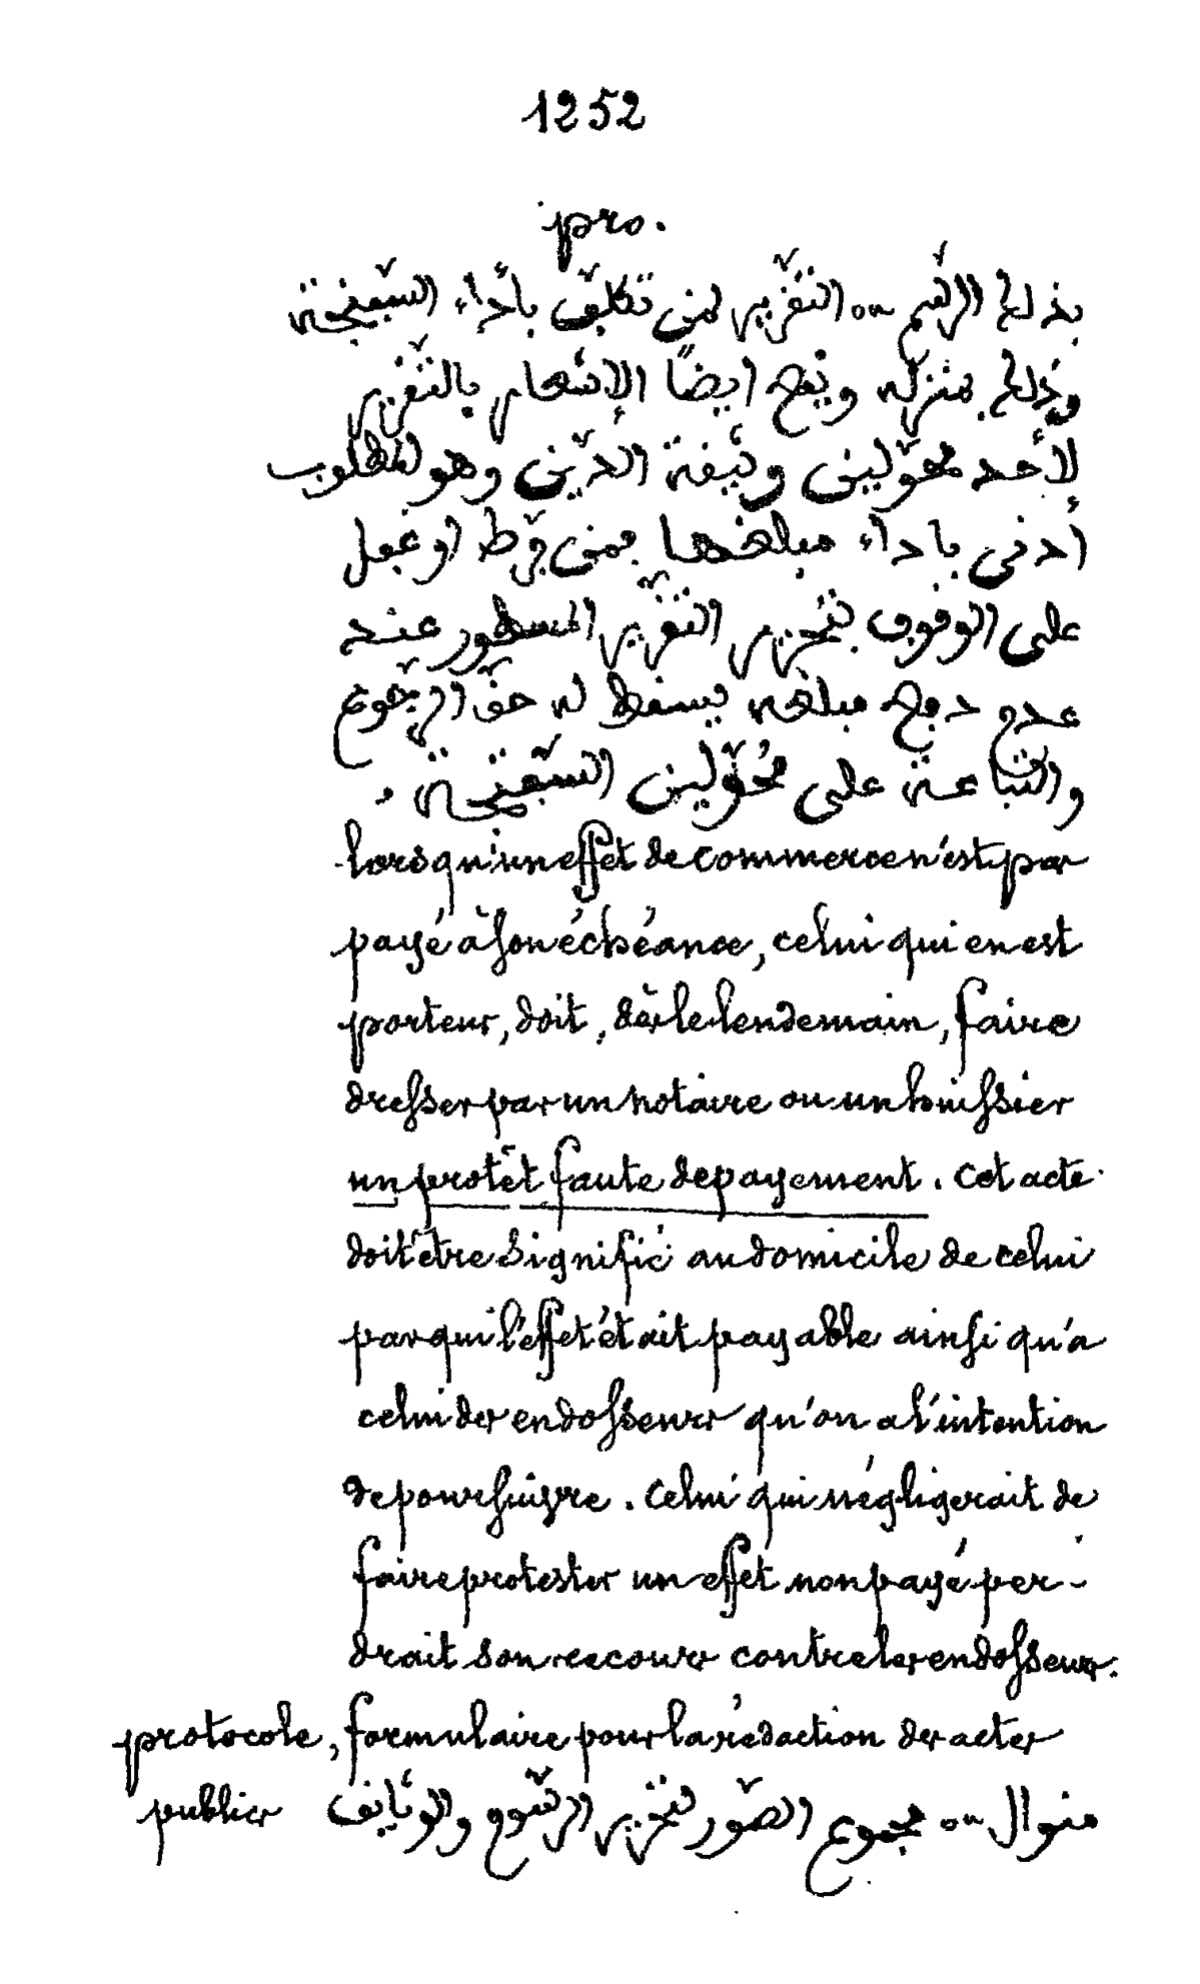 1252
pro.
بذلك الرقيم ou التقرير لمن تكلّف بأداء السّفتجة
وذلك بمنزله ويقع ايضًا الإشعار بالتقرير
لأحد محوّلين وثيقة الدّين وهو المطلوب
أدنى باداء مبلغها فمن فرّط او غفل
على الوقوف بتحرير التقرير المسطور عند
عدم دفع مبلغه يسقط له حقّ الرّجوع
والتّباعة على مُحوّلين السّفتجة
lorsqu'un effet de commerce n'est pas
payé à son échéance, celui qui en est
porteur, doit, dès le lendemain, faire
dresser par un notaire ou un huissier
un protêt faute de payement. Cet acte
doit être signifié au domicile de celui
par qui l'effet était payable ainsi qu'a
celui des endosseurs qu'on a l'intention
de poursuivre. Celui qui négligerait de
faire protester un effet non payé per-
drait son recours contre les endosseurs.
protocole, formulaire pour la rédaction des actes
publics منوال ou مجموع الصّور لتحرير الرّسوم والوثايق